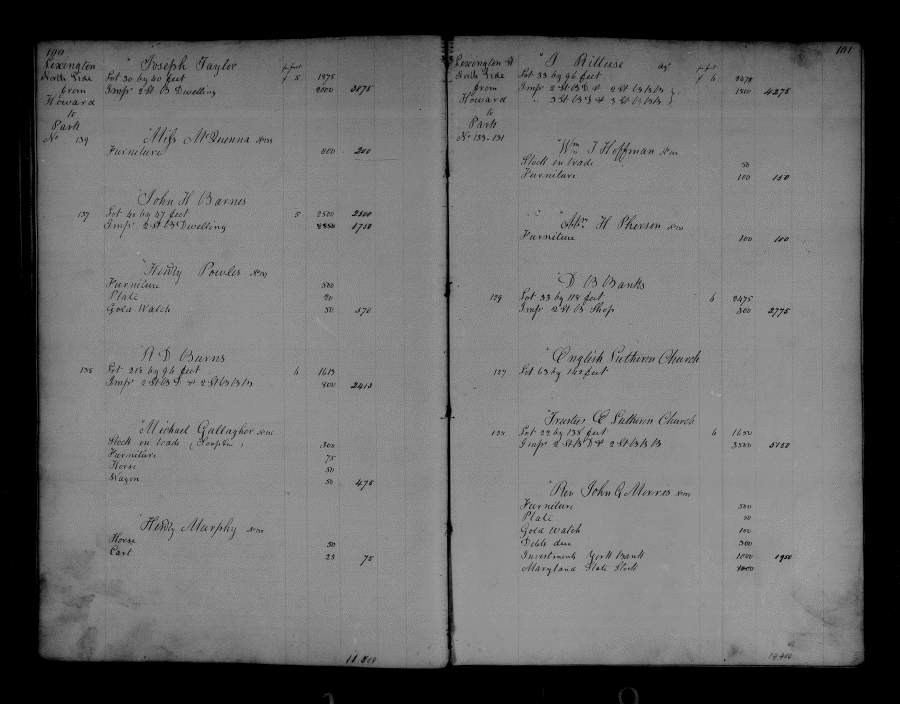 100
Lexington
North Side
from
Howard
to
Park
No 139
" Joseph Taylor
pr foot
Lot 30 by 40 feet f 5 1875
Impr 2 St B Dwelling 2000 3875
" Miss McQuenna
Furniture 200 200
" John H Barnes
137 Lot 40 by 47 feet 5 2500 2500
Impr 2 St B Dwelling 1750
" Henry Powles
Furniture 500
Plate 20
Gold Watch 50 570
" R D Burns
135 Lot by 96 feet 6 1613
Impr 2 St B D & 2 St B B B 800 2413
" Michael Gallagher
Stock in trade 300
Furniture 75
Horse 50
Wagon 50 475
" Henry Murphy
Horse 50
Cart 25 75
101
Lexington St
North Side
from
Howard
to
Park
No 133-131
pr foot
Lot 33 by 96 feet f 6
Impr 2 St B D & 2 St B B B 1800 4275
" 3 St B D & 2 St B B B
" Wm J Hoffman
Stock in trade 50
Furniture 100 150
H Pherson
Furniture 100 100
" D B Banks
129 Lot 33 by 118 feet 6 2475
Impr 2 St B Shop 300 2775
" English Lutheren Church
127 Lot 63 by 142 feet
" Trustees E Lutheren Church
Lot 22 by 138 feet 6 1650
Impr 2 St B D & 2 St B B B 3500 5150
" Rev John G Morris
Furniture 500
Plate 50
Gold Watch 100
Debts due 300
Investments York Bank 1000 1950
Maryland State Stock